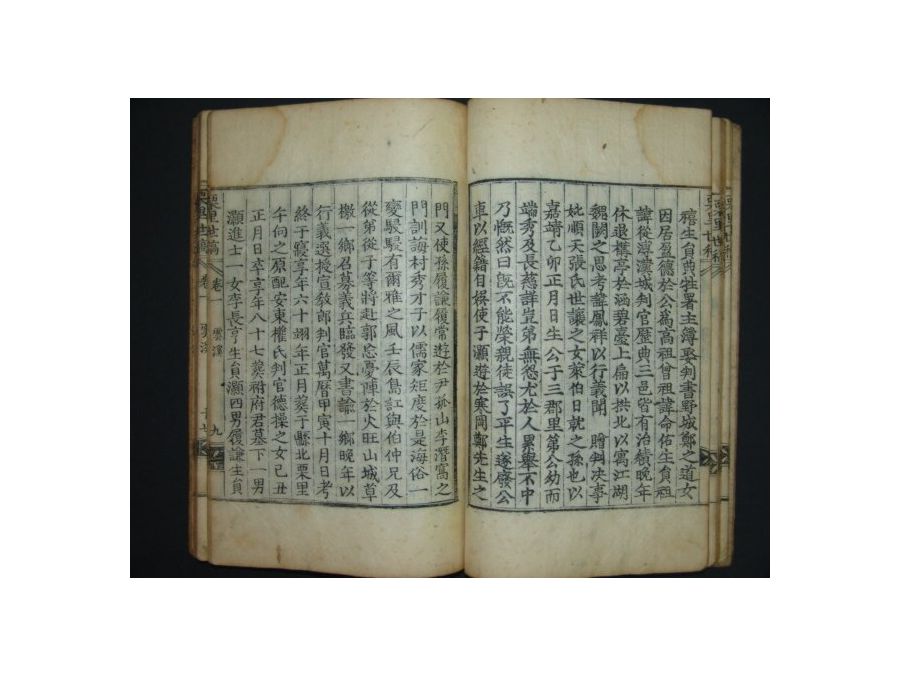 禧生員典牲署主簿娶判書野城鄭之道女
因居盈德於公爲高祖曾祖諱命佑生員祖
諱從淳漢城判官歷典三邑皆有治績晚年
休退構亭於涵碧臺上扁以拱北以寓江湖
魏闕之思考諱鳳祥以行義聞 贈判決事
妣順天張氏世讓之女萊伯日就之孫也以
嘉靖乙卯正月日生 公于三郡里第公幼而
端秀及長慈詳豈弟無怨尤於人累舉不中
乃慨然曰旣不能榮親徒誤了平生遂廢公
車以經籍自娛使子灝遊於寒岡鄭先生之
門又使孫履謙履常遊於尹孤山李潛窩之
門訓誨村秀才子以儒家矩度於是海俗一
變駸駸有爾雅之風壬辰島訌與伯仲兄及
從弟從子等將赴郭忘憂陣於火旺山城草
檄一鄉召募義兵臨發又書諭一鄉晚年以
行義選授宣敎郎判官萬曆甲寅十月日考
終于寢享年六十翊年正月葬于縣北栗里
午向之原配安東權氏判官德操之女己丑
正月日卒享年八十七葬祔府君墓下一男
灝進士一女李長亨生員灝四男履謙生員
栗里世稿
卷一
雲溪
九